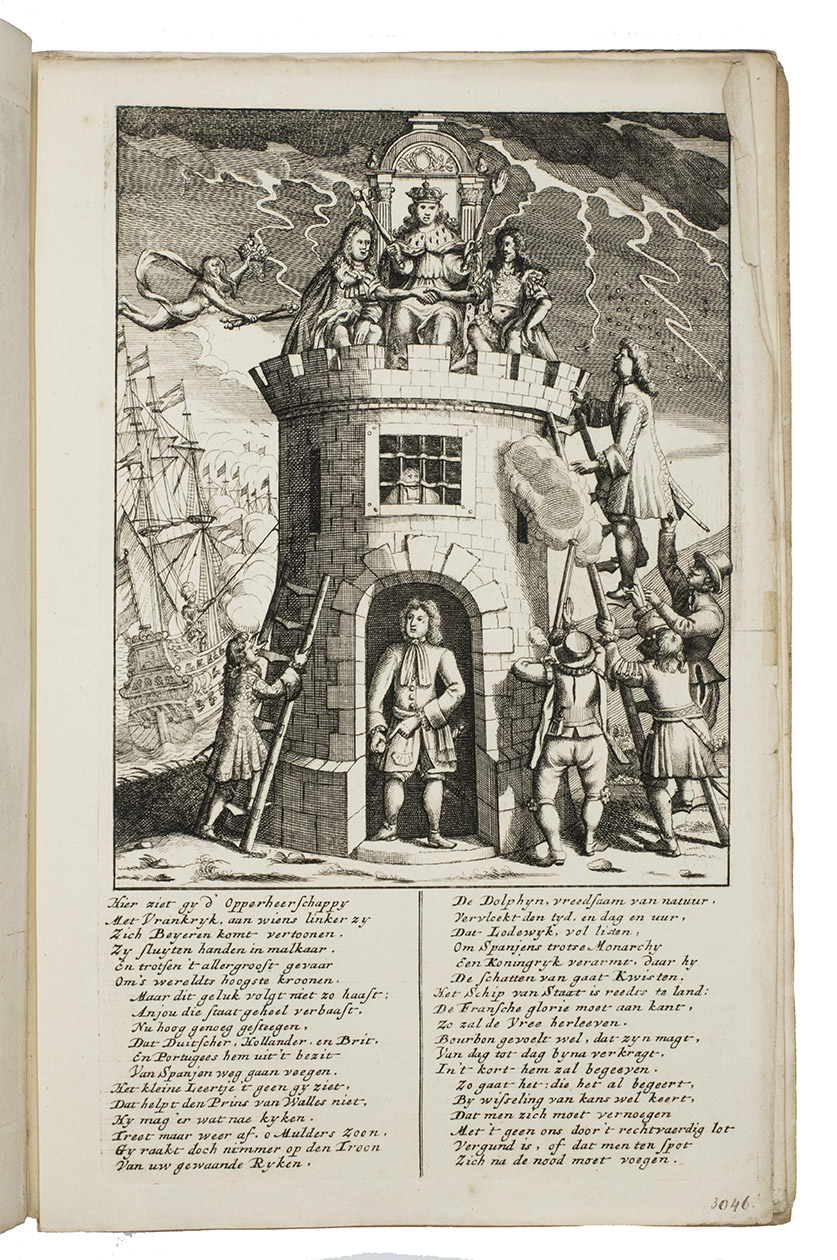 Hier ziet gy d' Opperheerschappy
Met Vrankryk, aan wiens linker zy
Zich Beyeren komt vertoonen.
Zy sluyten handen in malkaar.
En trotsen 't allergroost gevaar
Om 's wereldts hoogste kroonen.
Maar dit geluk volgt niet zo haast;
Anjou die staat geheel verbaast.
Nu hoog genoeg gesteegen,
Dat Duitscher, Hollander, en Brit,
En Portugees hem uit 't bezit
Van Spanjen weg gaan veegen.
Het kleine Leertje 't geen gy ziet,
Dat helpt den Prins van Walles niet,
Hy mag 'er wat nae kyken.
Treet maar weer af, o Mulders Zoon,
Gy raakt doch nimmer op den Troon
Van uw gewaande Ryken.
De Dolphyn, vreedsaam van natuur,
Vervloekt den tyd, en dag en uur,
Dat Lodewyk, vol listen,
Om Spanjens trotse Monarchy
Een Koningryk verarmt, daar hy
De schatten van gaat Kwisten.
Het Schip van Staat is reedts te land:
De Fransche glorie moet aan kant,
Zo zal de Vree herleeven.
Bourbon gevoelt wel, dat zyn magt,
Van dag tot dag byna verkragt,
In 't kort hem zal begeeven.
Zo gaat het: die het al begeert,
By wisseling van kans wel keert,
Dat men zich moet vernoegen
Met 't geen ons door 't rechtvaerdig lot
Vergund is, of dat men ten spot
Zich na de nood moet voegen.
3046.